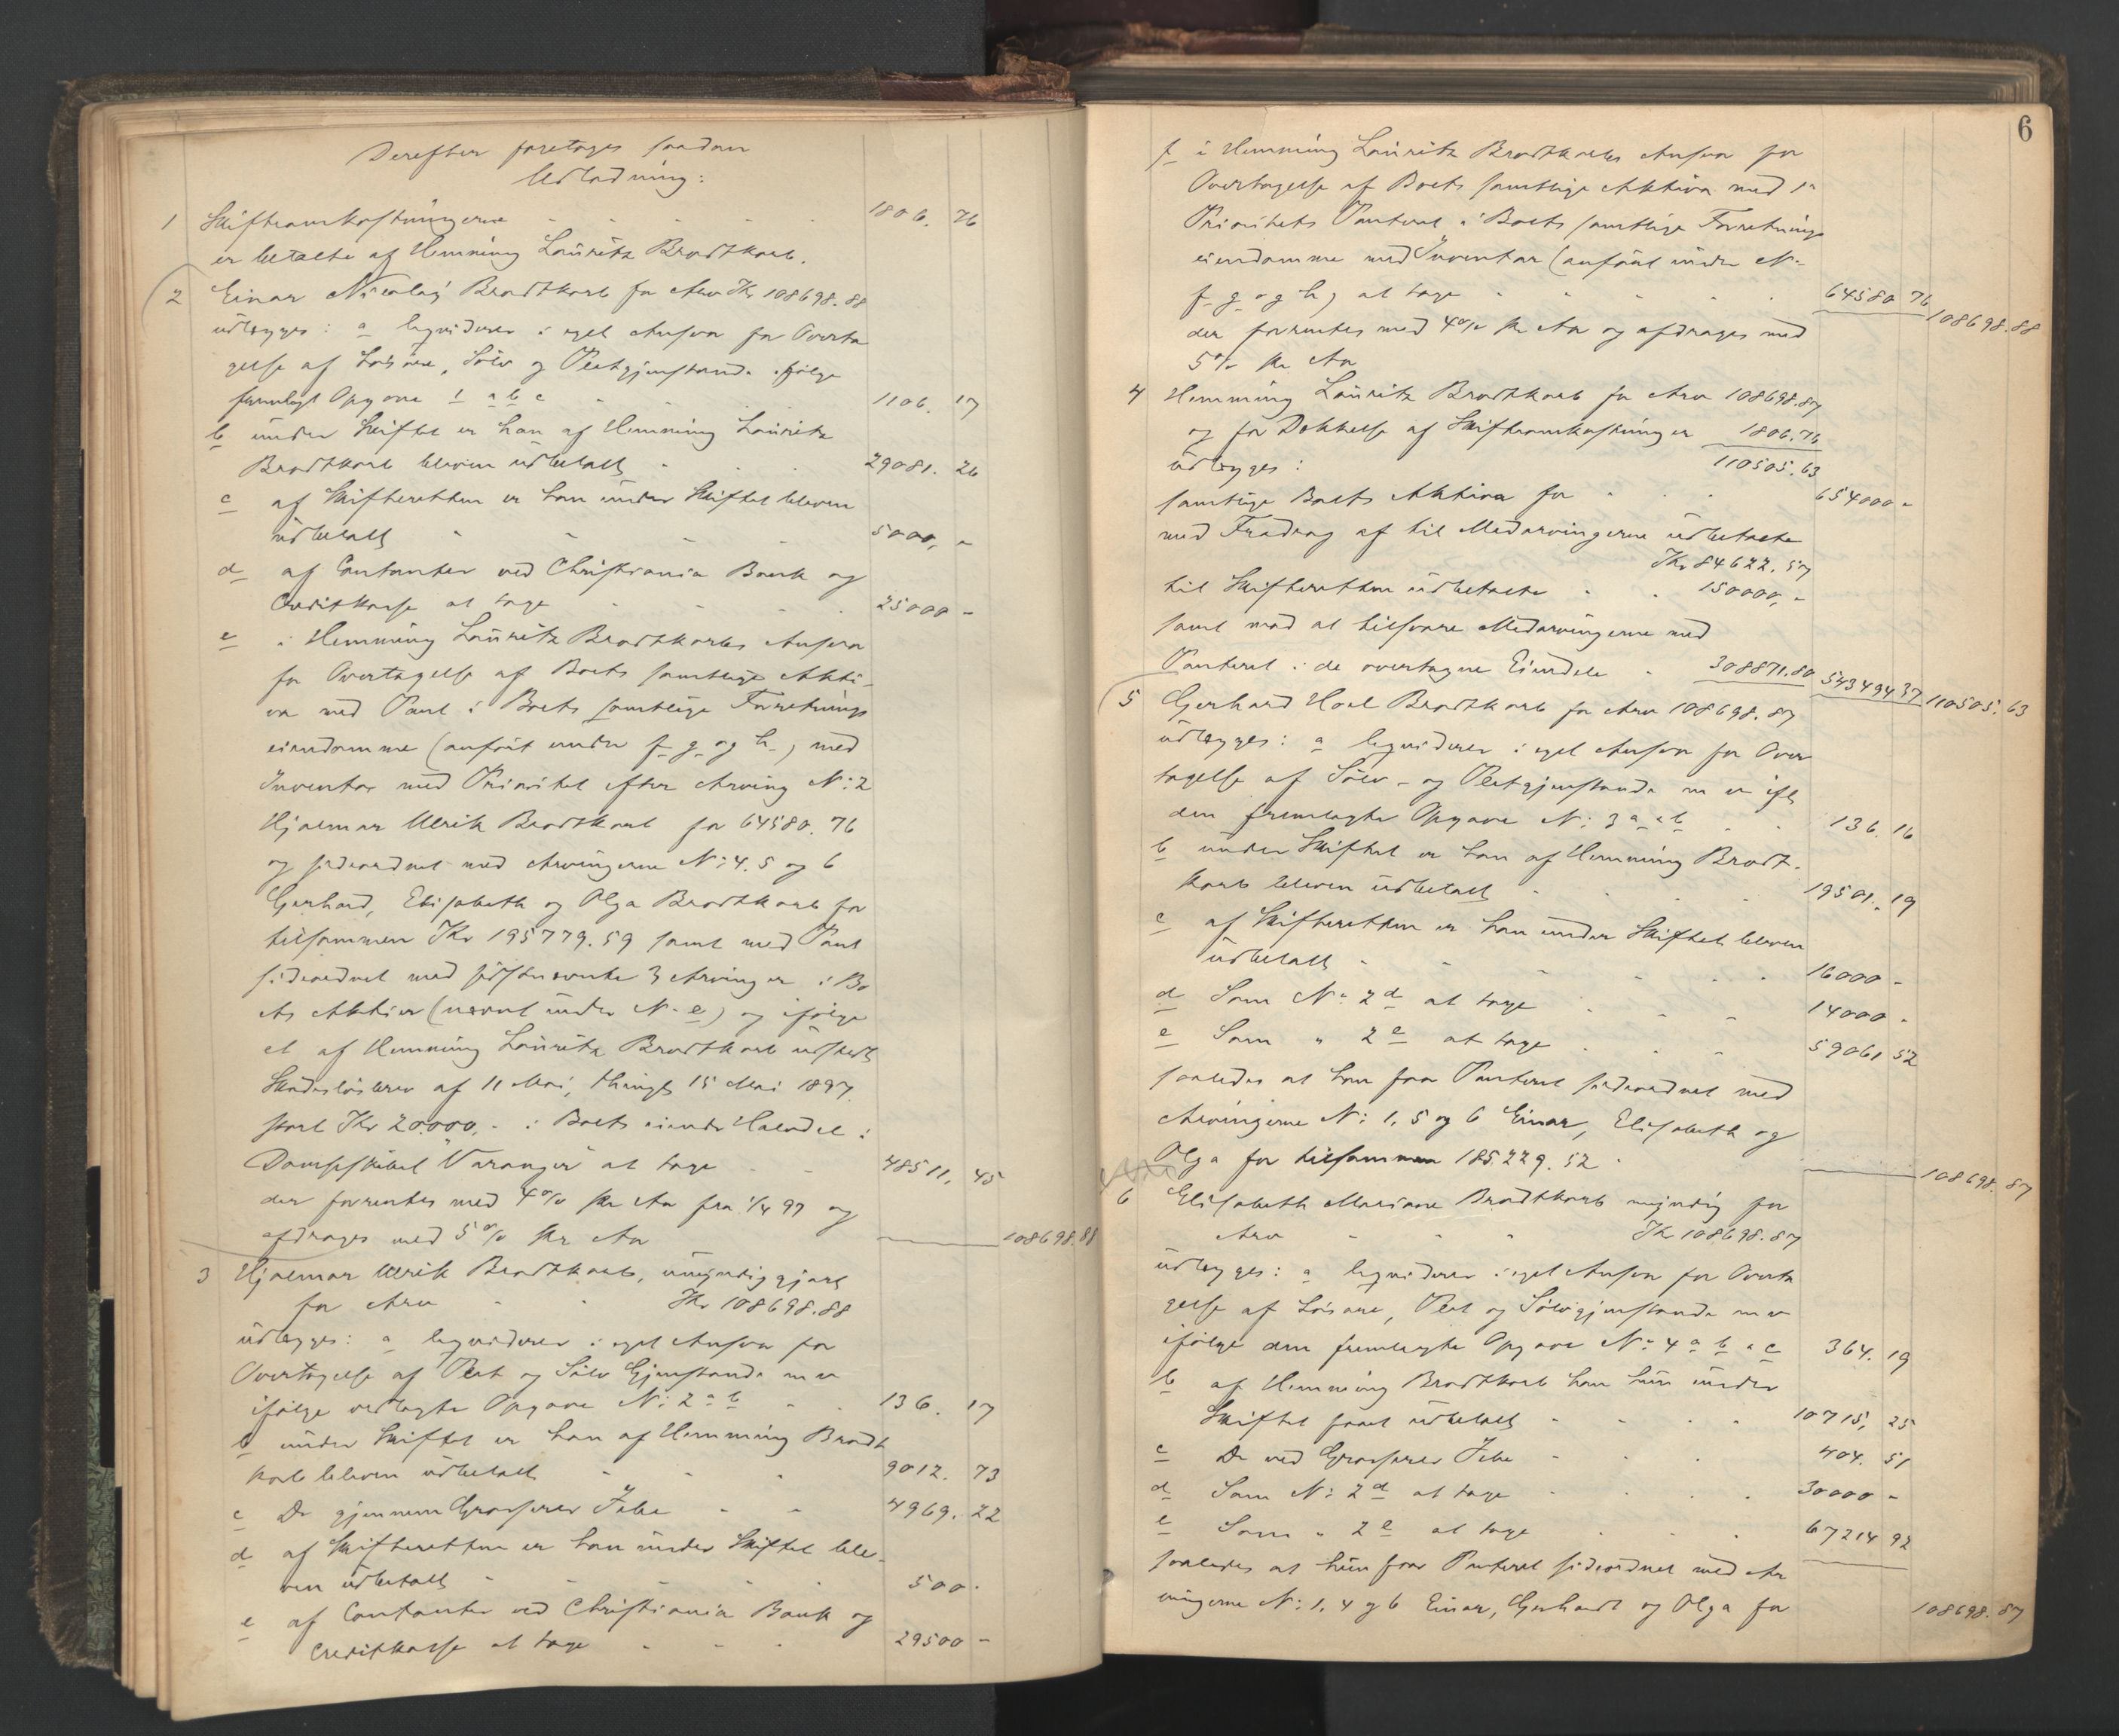 Derefter foretages saadan
Udlodning:
1 Skifteomkostningerne - - - - - 1806. 76
er betalte af Hemming Lauritz Brodtkorb.
2 Einar Nicolaj Brodtkorb for Arv Kr 108698.88
udlægges: a liquiderer i eget Ansvar for Overta
gelse af Løsøre, Sølv og Pletgjenstande ifølge
fremlagt Opgave 1 a b c - - - 1106. 17
b under Skiftet er han af Hemming Lauritz
Brodtkorb bleven udbetalt - - - 29081. 26
c af Skifteretten er han under Skiftet bleven
udbetalt - - - - 5000, -
d af Contanter ved Christiania Bank og
Creditkasse at tage - - - - 25000 -
e i Hemming Lauritz Brodtkorbs Ansvar
for Overtagelse af Boets samtlige Akti-
va med Pant i Boets samtlige Forretnings
eiendomme (anført under f g og h) med
Inventar med Prioritet efter Arving N: 2
Hjalmar Ulrik Brodtkorb for 64580. 76
og sideordnet med Arvingerne N: 4. 5 og 6
Gerhard, Elisabeth og Olga Brodtkorb for
tilsammen Kr 195779.59 samt med Pant
sideordnet med sidstnævnte 3 Arvinger i Bo
ets Aktier (nævnt under N. e) og ifølge
et af Hemming Lauritz Brodtkorb udstedt
Skadesløsbrev af 11 Mai, thingl. 15 Mai 1897.
stort Kr 20.000. - i Boets eiende Halvdel i
Dampskibet "Varanger" at tage - - 48511, 45
der forrentes med 4% pr Aar fra 1/4 97 og
afdrages med 5% pr Aar 108698.88
3 Hjalmar Ulrik Brodtkorb, umyndiggjort
for Arv - - Kr 108698.88
udlægges: a liquiderer i eget Ansvar for
Overtagelse af Plet og Sølv Gjenstande m v
ifølge vedlagte Opgave N: 2 a b - - 136. 17
b under Skiftet er han af Hemming Brodt
korb bleven udbetalt - - - 9012. 73
c Do gjennem Grosserer Jebe - - 4969. 22
d af Skifteretten er han under Skiftet ble-
ven udbetalt - - - - 500 -
e af Contanter ved Christiania Bank og
Creditkasse at tage - - - 29500 -
6
f i Hemming Lauritz Brodtkorbs Ansvar for
Overtagelse af Boets samtlige Aktiva med 1ste
Prioritets Panteret i Boets samtlige Forretnings
eiendomme med Inventar (anført under N:
f g og h) at tage - - - - 64580 76 108698.88
der forrentes med 4% pr Aar og afdrages med
5% pr Aar
4 Hemming Lauritz Brodtkorb for Arv 108698.87
og for Dækkelse af Skifteomkostninger 1806.76
udlægges: 110505.63
samtlige Boets Aktiva for - - - 654000 -
med Fradrag af til Medarvingerne udbetalte
Kr 84622.57
til Skifteretten udbetalte - - 150000, -
samt mod at tilsvare Medarvingerne med
Panteret i de overtagne Eiendele - 308871.80 543494 37 110505.63
5 Gerhard Hoel Brodtkorb for Arv 108698.87
udlægges: a liquiderer i eget Ansvar for Over
tagelse af Sølv- og Pletgjenstande m v ifl
den fremlagte Opgave N: 3 a & b - - 136. 16
b under Skiftet er han af Hemming Brodt-
korb bleven udbetalt - - - 19501. 19
c af Skifteretten er han under Skiftet bleven
udbetalt - - - - - 16000 -
d Som N: 2 d at tage - - - 14000 -
e Som " 2 e at tage - - - 59061 52
saaledes at han faar Panteret sideordnet med
Arvingerne N: 1, 5 og 6 Einar, Elisabeth og
Olga for tilsammen 185.229.52 - 108698.87
6 Elisabeth Mariane Brodtkorb myndig for
Arv - - - Kr 108698.87
udlægges: a liquiderer i eget Ansvar for Overta
gelse af Løsøre, Plet og Sølvgjenstande m v
ifølge den fremlagte Opgave N: 4 a b & c 364. 19
b af Hemming Brodtkorb har hun under
Skiftet faaet udbetalt - - - - 10715, 25
c Do ved Grosserer Jebe - - - 404. 51
d Som N: 2 d at tage - - - 30000 -
e Som " 2 e at tage - - - 67214 92
saaledes at hun faar Panteret sideordnet med Ar
vingerne N: 1, 4 og 6 Einar, Gerhardt og Olga for 108698.87